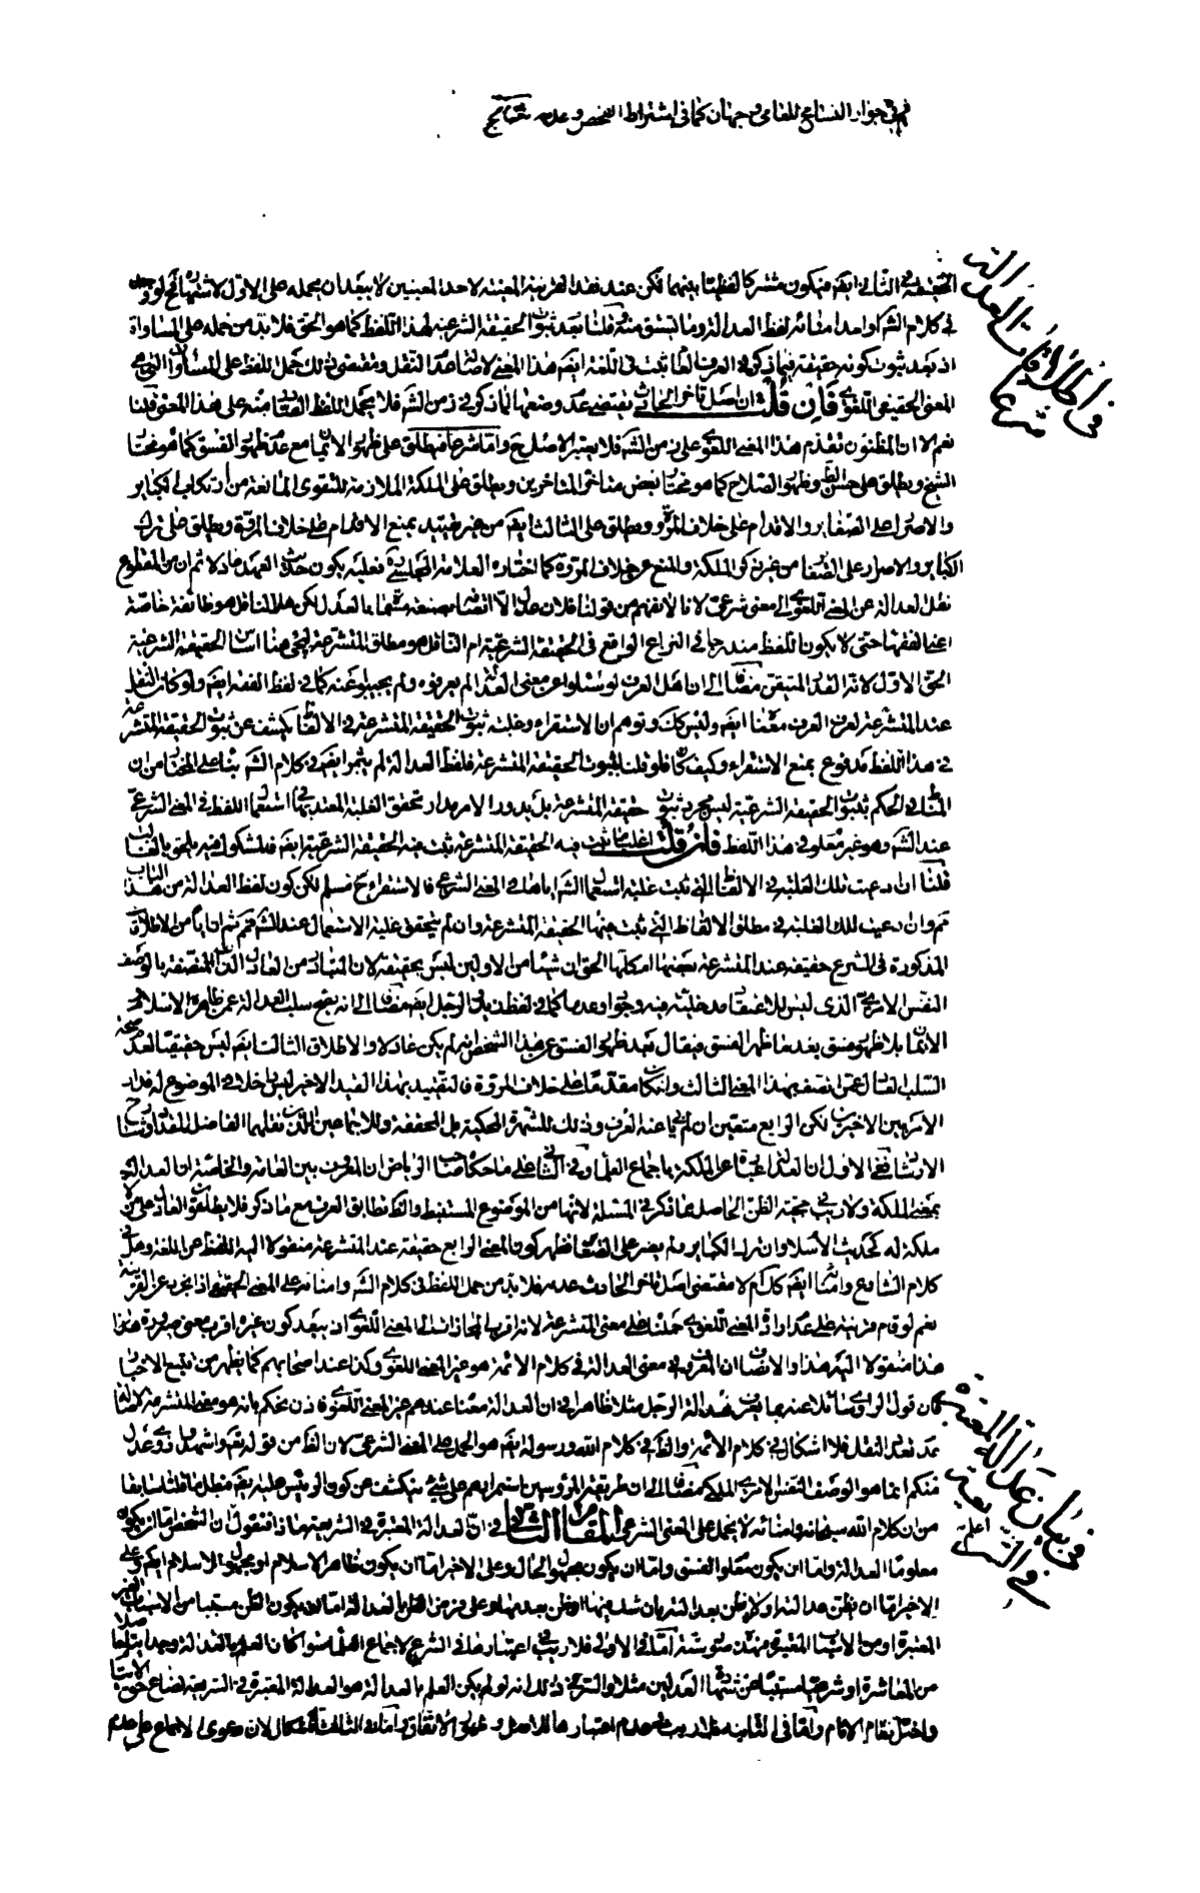 في جواز التسامح للقاضي وجهان كما في اشتراط الفحص وعدمه
في اطلاقات العدالة شرعا
الحقيقة في الثاني ايضا فيكون مشتركا لفظيا بينهما فكن عند فقد القرينة المعينة لاحد المعنيين لا يبعد ان يحمله على الاول لاشتهاره
في كلام الشه او احد امنائه لفظ العدالة وما يشتق منه قلنا بعد ثبوت الحقيقة الشرعية لهذا اللفظ كما هو الحق فلا بد من حمله على المساواة
اذ بعد ثبوت كونه حقيقة فيما ذكر في العرف العام ثبت في اللغة ايضا هذا المعنى لاصالة عدم النقل ومقتضى ذلك حمل اللفظ على المساواة التي هي
المعنى الحقيقي اللغوي فان قلت ان اصل تاخر الحادث يقتضي عدم وضعها لما ذكر في زمن الشه فلا يحمل اللفظ الصادر منه على هذا المعنى قلنا
نعم الا ان المظنون تقدم هذا المعنى اللغوي على زمن الشه فلا يعتبر الاصل ح واما شرعا فيطلق على ظهور الايمان مع عدم ظهور الفسق كما هو مختار
الشيخ ويطلق على حسن الظاهر وظهور الصلاح كما هو مختار بعض متاخري المتاخرين ويطلق على الملكة الملازمة للتقوى المانعة من ارتكاب الكبائر
والاصرار على الصغائر والاقدام على خلاف المروة ويطلق على الثالث ايضا من غير تقييد بمنع الاقدام على خلاف المروة ويطلق على ترك
الكبائر والاصرار على الصغائر من غير ذكر الملكة والمنع عن خلاف المروة كما اختاره العلامة المجلسي فعليه يكون حديث العهد عادلا ثم ان من المقطوع
نقل العدالة عن المعنى اللغوي الى معنى شرعي لانا لا نفهم من قولنا فلان عادل الا اتصافه بصفة مسماة بالعدل لكن هل الناقل هو طائفة خاصة
اعني الفقهاء حتى لا يكون اللفظ مندرجا في النزاع الواقع في الحقيقة الشرعية ام الناقل هو مطلق المتشرعة ليجيء هنا اساس الحقيقة الشرعية
الحق الاول لانه القدر المتيقن مضافا الى ان اهل العرف لو سئلوا عن معنى العدالة لم يعرفوه ولم يجيبوا عنه كما في لفظ الفقه ايضا ولو كان النقل
عند المتشرعة لعرف العرف معناه ايضا وليس كك وتوهم ان الاستقراء وغلبة ثبوت الحقيقة المتشرعة في الالفاظ يكشف عن ثبوت الحقيقة المتشرعة
في هذا اللفظ مدفوع بمنع الاستقراء وكيف كان فلو قلنا بثبوت الحقيقة المتشرعة فلفظ العدالة لم يثمر ايضا في كلام الشه بناء على المختار من ان
المناط في الحكم بثبوت الحقيقة الشرعية ليس مجرد ثبوت حقيقة المتشرعة بل يدور الامر مدار تحقق الغلبة المعتد بها في استعمال اللفظ في المعنى الشرعي
عند الشه وهو غير معلوم في هذا اللفظ فان قلت اغلب ما ثبت فيه الحقيقة المتشرعة ثبت فيه الحقيقة الشرعية ايضا فالمشكوك فيه يلحق بالغالب
قلنا ان ادعيت تلك الغلبة في الالفاظ التي ثبت غلبة استعمال الشه اياها في المعنى الشرعي فالاستقراء ح مسلم لكن كون لفظ العدالة من هذا الباب
مم وان ادعيت تلك الغلبة في مطلق الالفاظ التي ثبت فيها الحقيقة المتشرعة وان لم يتحقق غلبة الاستعمال عند الشه فمم ثم ان ايا من الاطلاقات
المذكورة في الشرع حقيقة عند المتشرعة بعضها ام كلها الحق ان شيئا من الاولين ليس بحقيقة لان المتبادر من العادل الذات المتصفة بالوصف
النفس الامري الذي ليس للاعتقاد مدخلية فيه وجودا وعدما كما في لفظ الرجل ايضا مضافا الى انه يصح سلب العدالة عن ظاهر الاسلام
الايمان بلا ظهور فسق بعد ما ظهر الفسق فيقال بعد ظهور الفسق عن هذا الشخص انه لم يكن عادلا والاطلاق الثالث ايضا ليس حقيقيا لعدم صحة
السلب العدالة عمن اتصف بهذا المعنى الثالث وان كان مقدما على خلاف المروة فالتقييد بهذا القيد الاخير ليس داخلا في الموضوع له فدار
الامر بين الاخيرين لكن الرابع متعين ان لم ياباه عنه العرف وذلك للشهرة المحكية بل المحققة وللاجماعين اللذين نقلهما الفاضل المقداد وشارح
الارشاد ففي الاول ان العدالة عبارة عن الملكة باجماع العلماء وفي الثاني على ما حكاه صاحب الرياض ان المعروف بين العامة والخاصة ان العدالة
بمعنى الملكة ولا ريب في حجية الظن الحاصل مما ذكر في المسئلة لانها من الموضوع المستنبط والظ تطابق العرف مع ما ذكر فلا يطلقون العادل على من لا
ملكة له كحديث الاسلام وان ترك الكبائر ولم يصر على الصغائر فظهر كون المعنى الرابع حقيقة عند المتشرعة منقولا اليه اللفظ عن اللغة وهل في
كلام الشارع وامنائه ايضا كك ام لا مقتضى اصل تاخر الحادث عدمه فلا بد من حمل اللفظ في كلام الشه وامنائه على المعنى الحقيقي اذا تجرد عن القرينة
نعم لو قام قرينة على عدم ارادة المعنى اللغوي حملناه على معنى المتشرعة لانه اقرب المجازات الى المعنى اللغوي اذ يبعد كون غيره اقرب مع صيرورة هذا
هذا منقولا اليه هذا والانصاف ان المعروف في معنى العدالة في كلام الائمة هو غير المعنى اللغوي وكذا عند اصحابهم كما يظهر من تتبع الاخبار
فان قول الراوي سائلا عنه بما يعرف عدالة الرجل مثلا ظاهر في ان العدالة معناه عندهم غير المعنى اللغوي فاذن نحكم بانه هو معنى المتشرعة لاصالة
عدم تعدد النقل فلا اشكال في كلام الائمة واما في كلام الله ورسوله ايضا هو الحمل على المعنى الشرعي لان الظ من قوله تعالى واشهدوا ذوي عدل
منكم انما هو الوصف النفس الامري الملكي مضافا الى ان طريقة المرؤوسين استمرارهم على شيء يكشف عن كون الرئيس عليه ايضا فبطل ما قلنا سابقا
من ان كلام الله سبحانه وامنائه لا يحمل على المعنى الشرعي المقام الثاني في ان العدالة المعتبرة في الشريعة ماذا فنقول ان الشخص اما ان يكون
معلوم العدالة واما ان يكون معلوم الفسق واما ان يكون مجهول الحال وعلى الاخير اما ان يكون ظاهر الاسلام او مجهول الاسلام ايضا وعلى
الاخير اما ان يظن عدالته او لا يظن بعدالته بان شك فيها او ظن بعدمها وعلى فرض الظن بالعدالة اما ان يكون الظن مسببا من الاسباب الغير
المعتبرة او من الاسباب المعتبرة فهذه صور ستة اما في الاولى فلا ريب في اعتبارها في الشرع لاجماع العلماء سواء كان العلم بالعدالة وجدانيا حاصلا
من المعاشرة او شرعيا مستفادا عن شهادة العدلين مثلا والسر في ذلك انه لو لم يكن العلم بالعدالة هو العدالة المعتبرة في الشريعة لضاع حقوق الناس
واختل نظام الانام واما في الثانية فلا ريب في عدم اعتبارها للاصل وظهور الاتفاق واما في الثالثة فاشكال لان دعوى الاجماع على عدم
في بيان عدالة المعتبرة في الشريعة